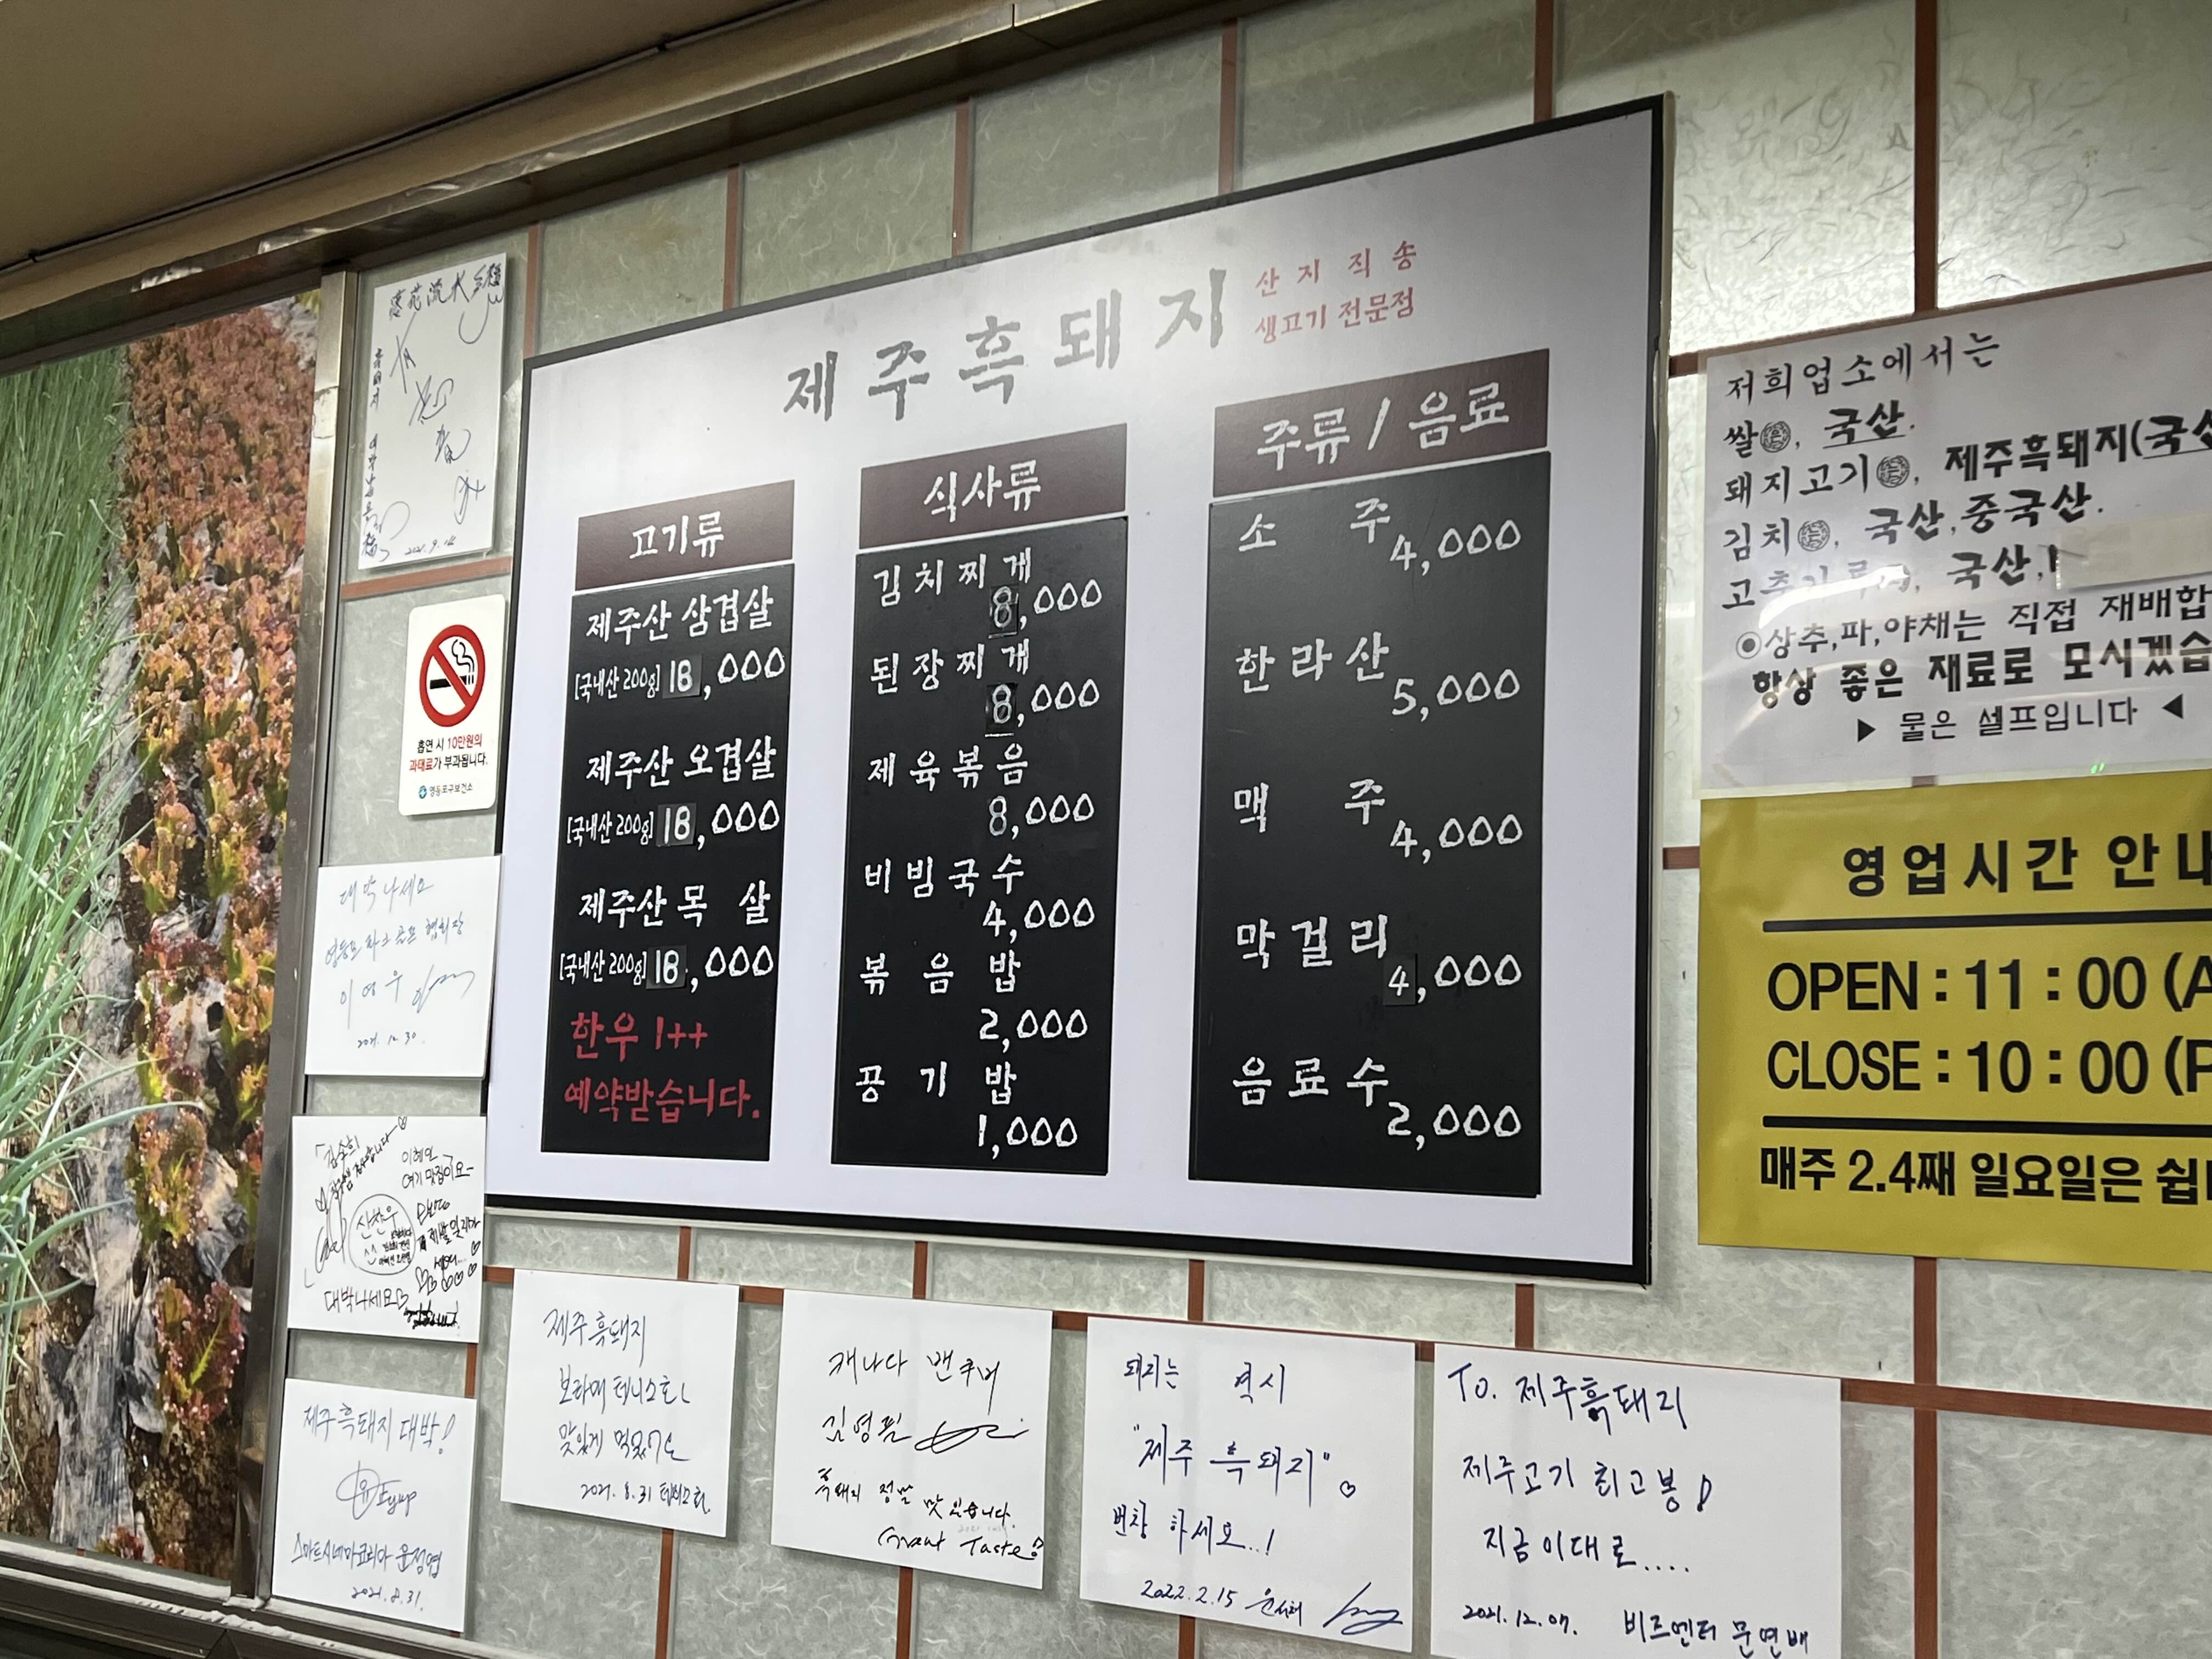 제주흑돼지
산지직송
생고기 전문점
고기류
제주산 삼겹살
[국내산 200g] 18,000
제주산 오겹살
[국내산 200g] 18,000
제주산 목 살
[국내산 200g] 18,000
한우 1++
예약받습니다.
식사류
김치찌개
8,000
된장찌개
8,000
제육볶음
8,000
비빔국수
4,000
볶음밥
2,000
공기밥
1,000
주류 / 음료
소 주
4,000
한라산
5,000
맥 주
4,000
막걸리
4,000
음료수
2,000
저희업소에서는
쌀은, 국산.
돼지고기는, 제주흑돼지(국산
김치는, 국산,중국산.
국산,
◉상추,파,야채는 직접 재배합
항상 좋은 재료로 모시겠습
▶ 물은 셀프입니다 ◀
영업시간 안내
OPEN : 11 : 00 (A
CLOSE : 10 : 00 (P
매주 2.4째 일요일은 쉽니
흡연 시 10만원의
과태료가 부과됩니다.
영등포구보건소
2021.9.14
대박나세요
이영우
2021.12.30.
이혜인
여기 맛집이요~
대박나세요
제주흑돼지 대박!
스마트시네마코리아 윤정엽
2021.8.31.
제주흑돼지
보라매 테니스회
맛있게 먹었어요
2021.8.31
캐나다 밴쿠버
김영필
흑돼지 정말 맛있습니다.
Great Taste!
돼지는 역시
"제주 흑돼지"♡
번창 하세요..!
2022.2.15
To. 제주흑돼지
제주고기 최고봉!
지금 이대로....
2021.12.07. 비즈엔터 문연배